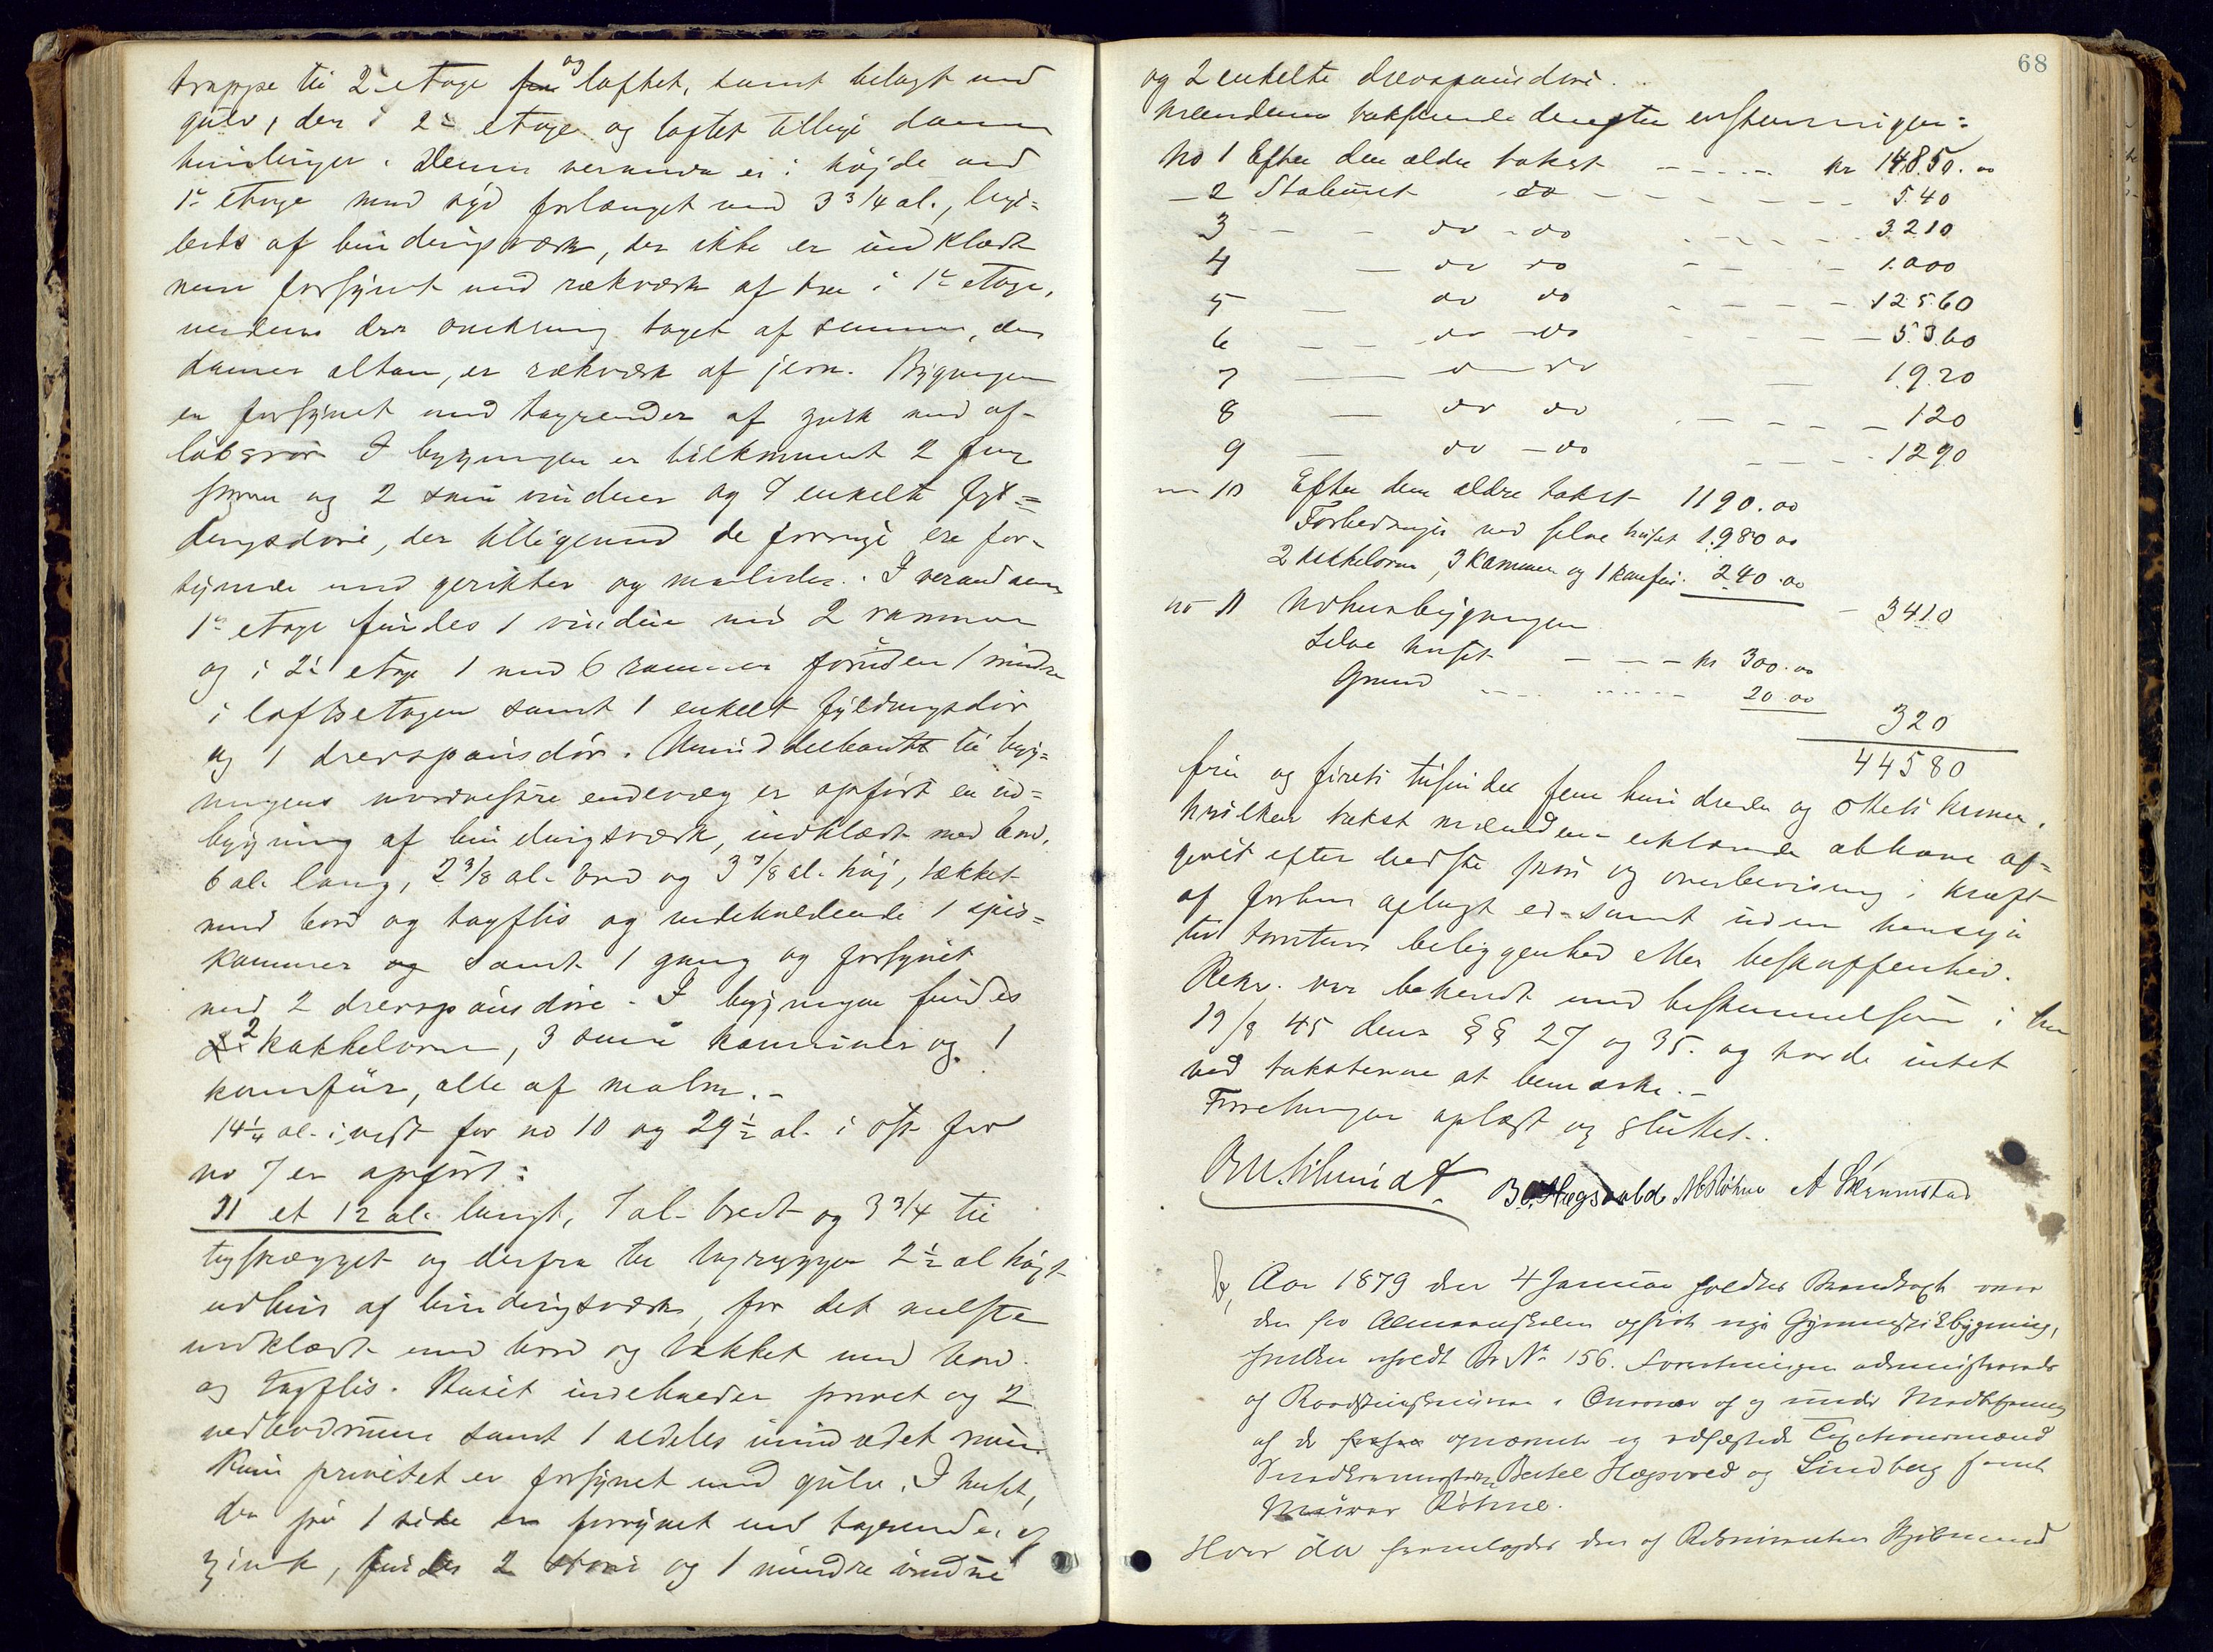 trappe til 2 etage og loftet, samt belagt med
gulv, der i 2 etage og loftet tillige danner
himlinger. Denne veranda er i højde med
1 etage mod syd forlænget med 3 3/4 al., lige=
ledes af bindingsværk, der ikke er indklædt
men forsynet med rækværk af træ i 1 etage,
medens der omkring taget af samme, der
danner altan, er rækværk af jern. Bygningen
er forsynet med tagrender af zink med af-
løbsrør. I bygningen er tilkommet 2 fag
større og 2 små vinduer og 7 enkelte fyl=
dingsdøre, der tilligemed de forrige ere for-
synede med gerikter og malede. I verandaens
1 etage findes 1 vindue med 2 rammer
og i 2 etage 1 med 6 rammer foruden 1 mindre
i loftsetagen samt 1 enkelt fyldingsdør
og 1 dreverspansdør. Umiddelbart til byg=
ningens nordvestre endevæg er opført en ud=
bygning af bindingsværk, indklædt med bord,
6 al. lang, 2 3/8 al. bred og 3 7/8 al. høj, tækket
med bord og tagflis og indeholdende 1 spis=
kammer og samt 1 gang og forsynet
med 2 dreverspansdøre. I bygningen findes
2 kakkelovne, 3 små kaminer og 1
komfur, alle af malm. -
14 1/4 al. i vest for no 10 og 29 1/2 al. i øst for
no 7 er opført:
11 et 12 al. langt, 7 al. bredt og 3 3/4 til
tagskægget og derfra til tagryggen 2 1/2 al højt
udhus af bindingsværk, for det meste
indklædt med bord og tækket med bord
og tagflis. Huset indeholder privet og 2
vedbodrumme samt 1 aldeles uindredet rum.
Kun privetet er forsynet med gulv. I huset,
der på 1 side er forsynet med tagrende af
zink, findes 2 større og 1 mindre vindue
68
og 2 enkelte dreverspansdøre.
Mændene takserede derefter erstatningen:
No 1 Efter den ældre takst - - - - - kr 14850.00
- 2 Staburet do - - - - - - 540
3 - - do - do - - - - 3210
4 - do do - - - 1.000
5 - do do - - - - 12560
6 - - do - do - - 5360
7 - - do - do - 1920
8 - do do - - - - 120
9 - do - do - - - 1290
no 10 Efter den ældre takst 1190.00
Forbedringer ved selve huset 1.980 00
2 kakkelovne, 3 kaminer og 1 komfur. 240.00
- 3410
no 11 Udhusbygningen
Selve huset - - - kr 300.00
Grund - - - - 20.00
320
44580
fire og fireti tusinder fem hundrede og otteti kroner,
hvilken takst mændene erklærede at have af=
givet efter bedste skøn og overbevisning i kraft
af forhen aflagt ed samt uden hensyn
til tomtens beliggenhed eller beskaffenhed.
Rekv. var bekendt med bestemmelserne i lov
19/8 45 dens §§ 27 og 35. og havde intet
ved taksterne at bemærke. -
Forretningen oplæst og sluttet.
Schmidt. B. Hægsvold M Røhne A Skramstad
Aar 1879 den 4 Januar holdtes Brandtaxt over
den for Almueskolen opførte nye Gymnastikbygning,
hvilken anholdt Br. No 156. Forretningen administreredes
af Raadstueskriveren i Overvær af og under Medhjælp
af de opnævnte og edfæstede Taxationsmænd
Snedkermester Bertel Hægsvold og Lindberg samt
Murer Røhne.
Hvor da fremlagdes den af Rekvirenten